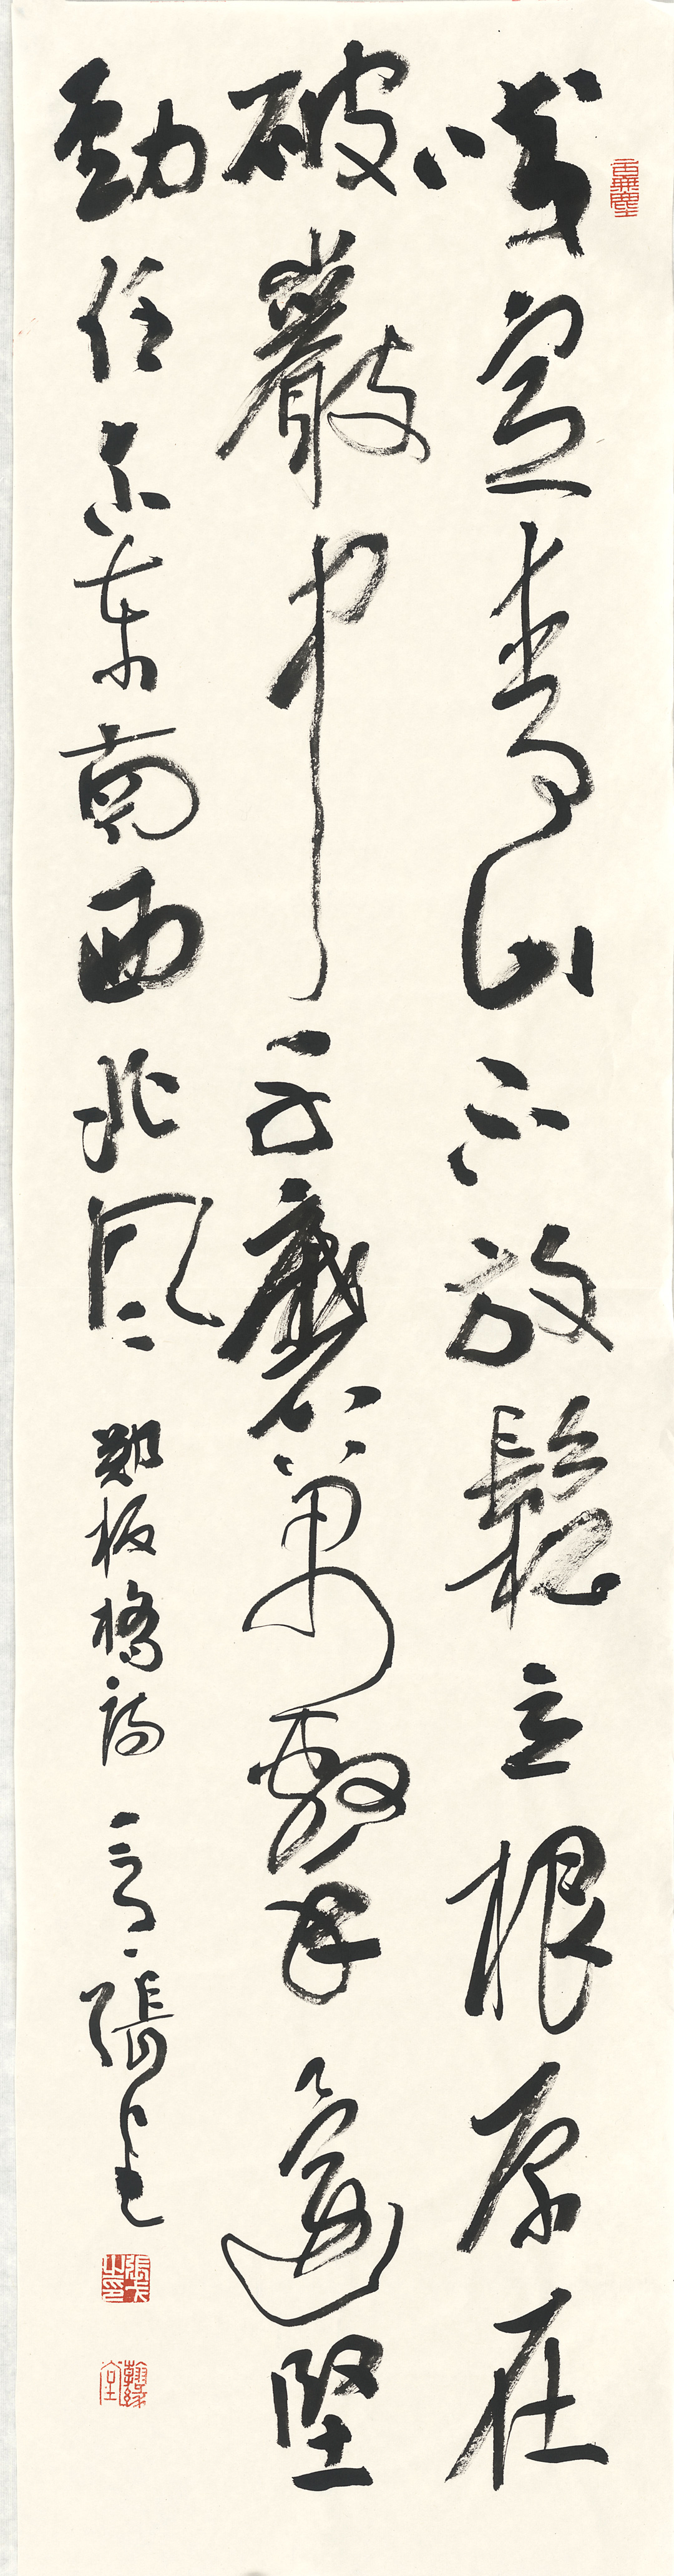 咬定青山不放鬆立根原在
破巖中千磨萬擊還堅
勁任尔東南西北風
鄭板橋詩 張